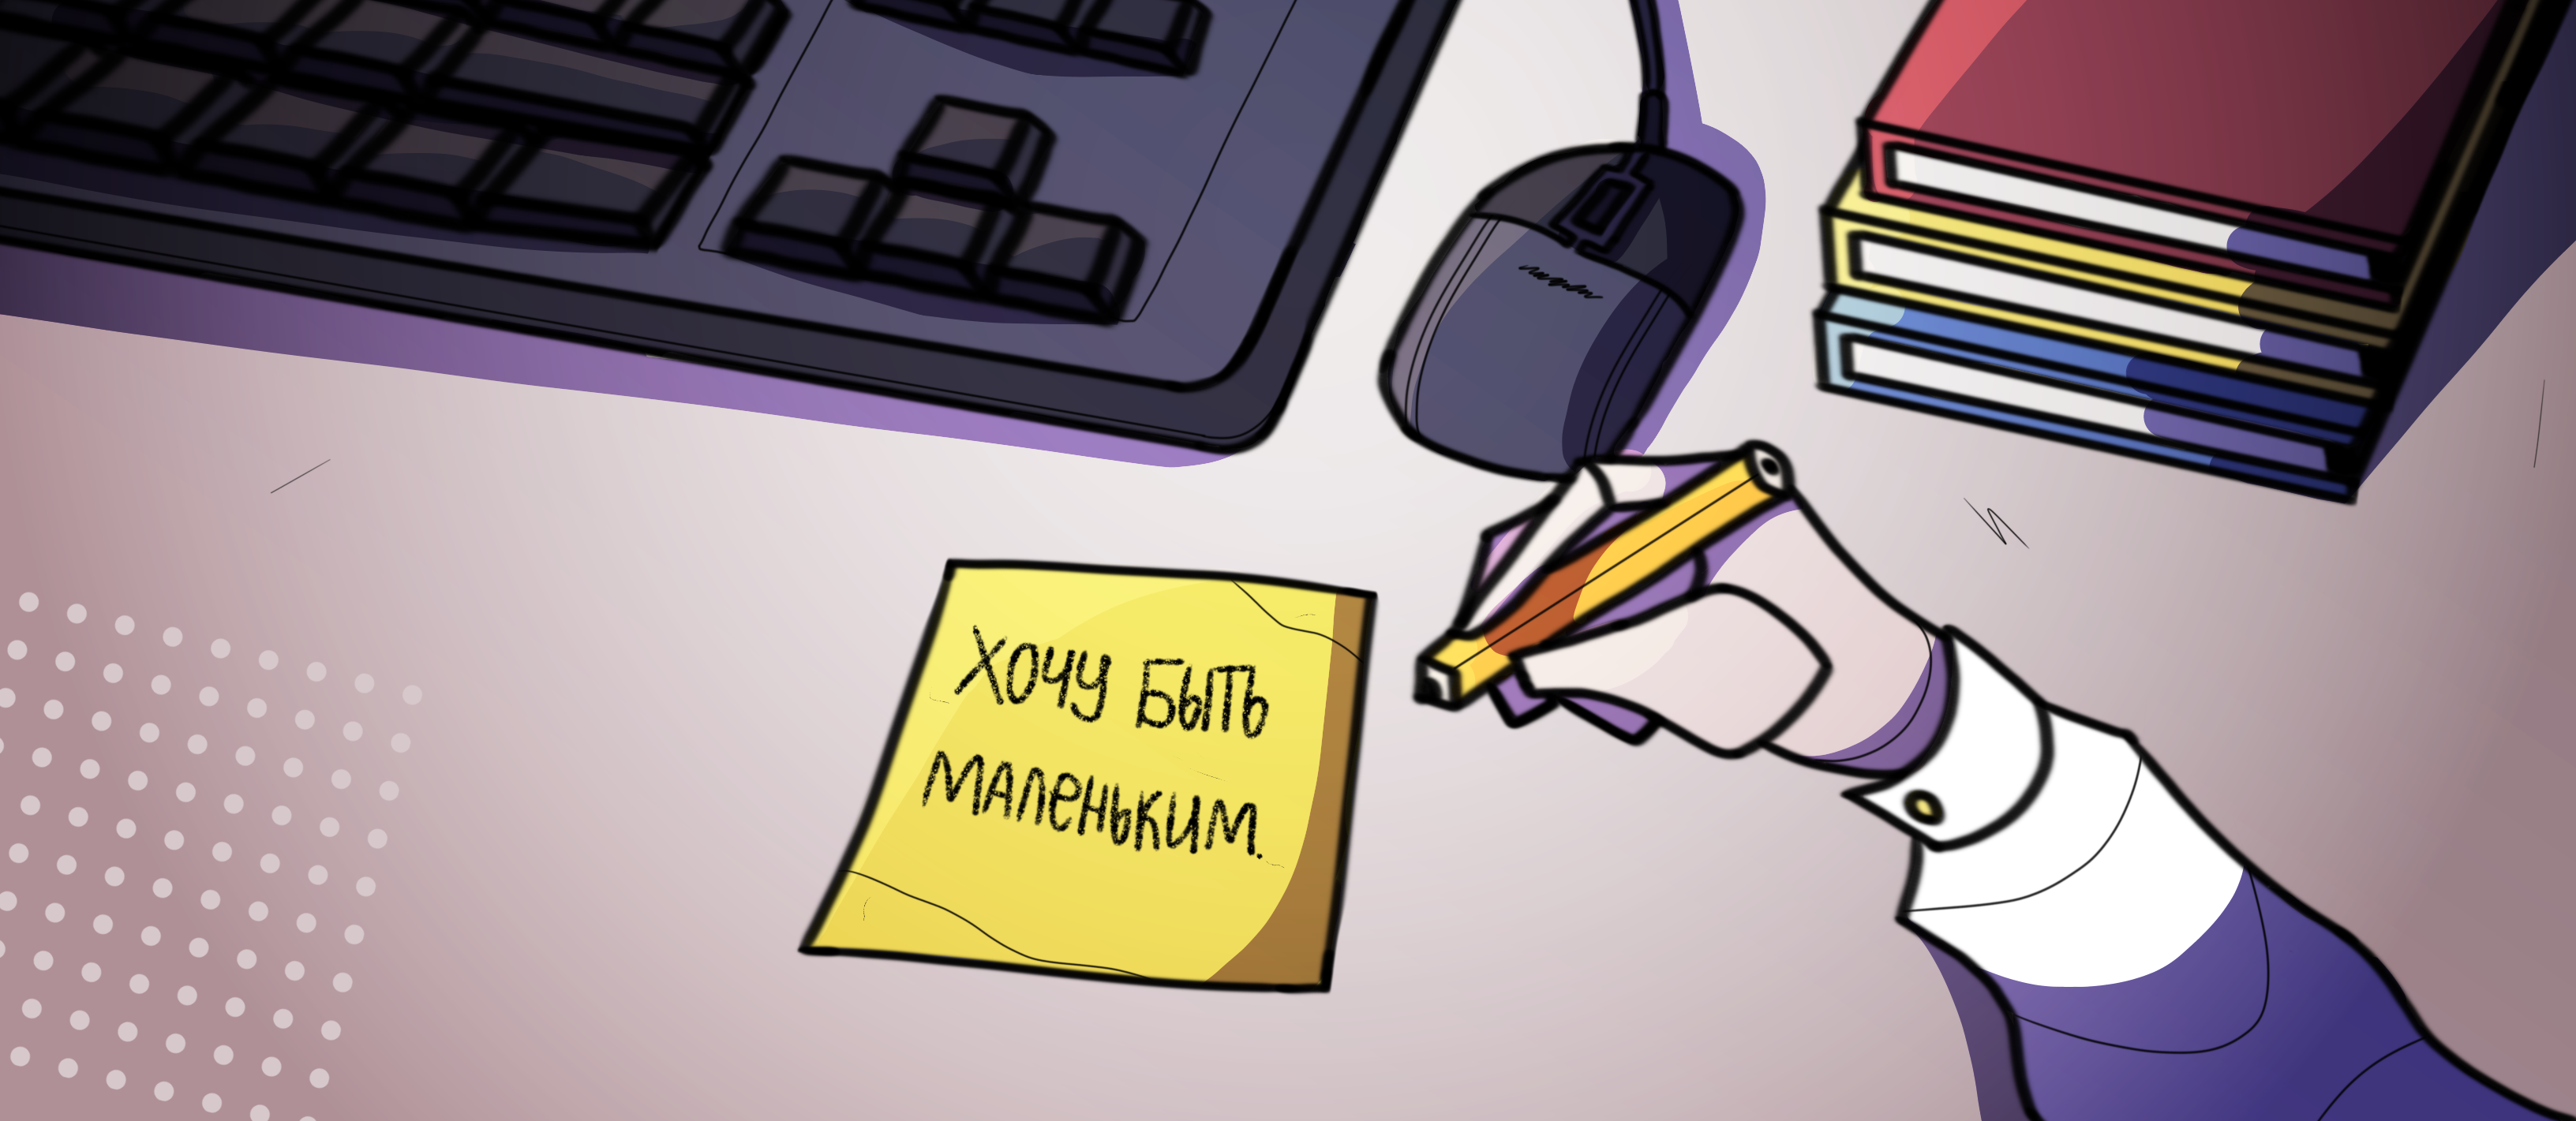 Хочу быть
маленьким.